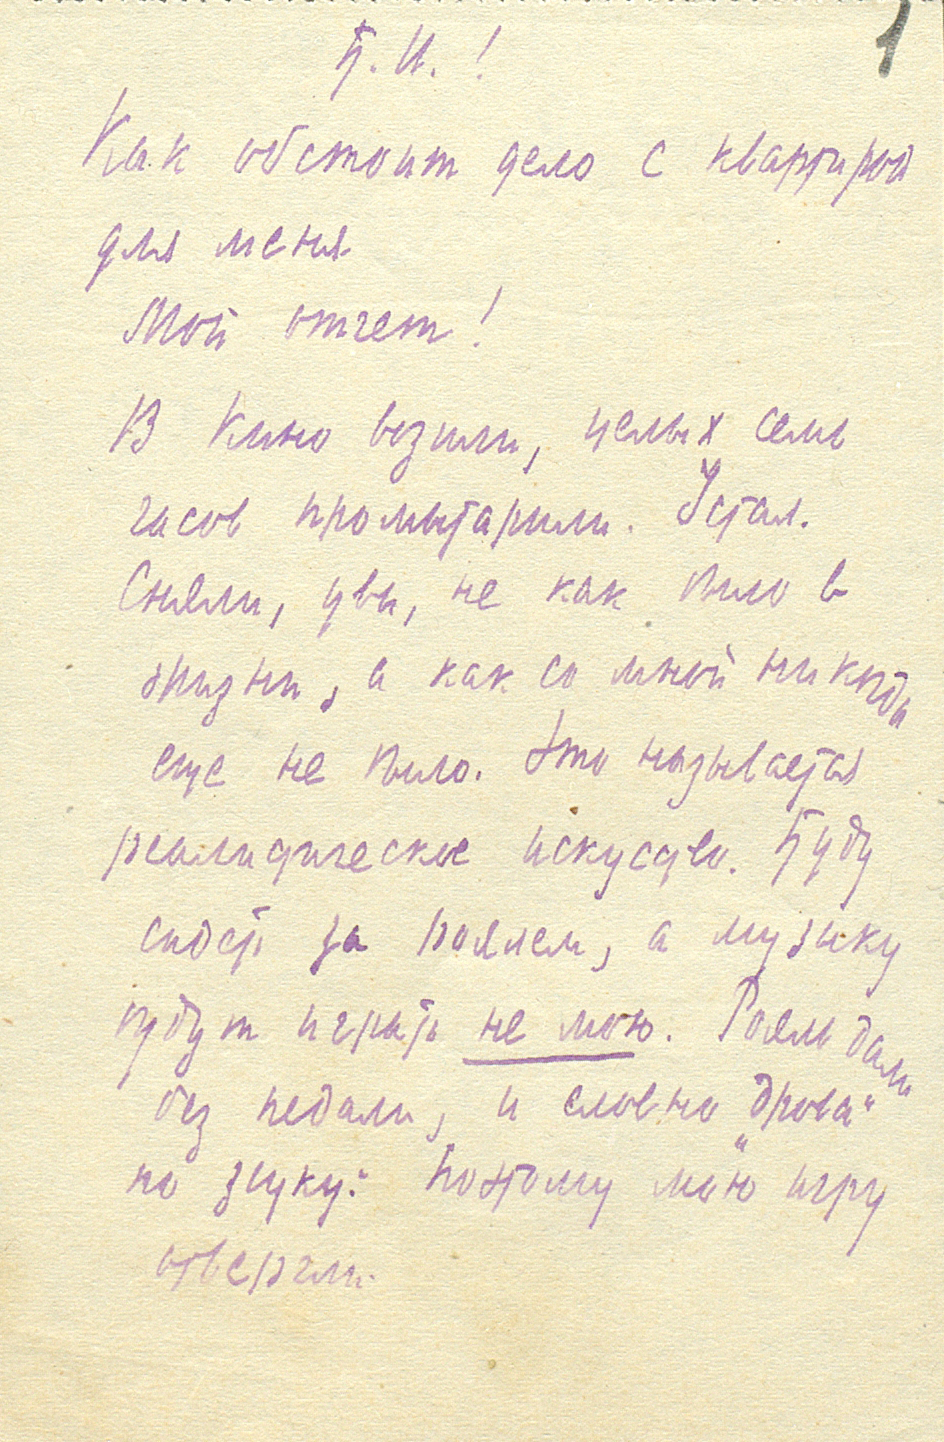 1
Б. И. !
Как обстоит дело с квартирой
для меня.
Мой отчет!
В Кино возили, целых семь
часов промытарили. Устал.
Сняли, увы, не как было в
жизни, а как со мной никогда
еще не было. Это называется
реалистическое искусство. Буду
сидеть за роялем, а музыку
будут играть не мою. Рояль дали
без педали, и словно "дрова"
по звуку. Поэтому мою игру
отвергли.